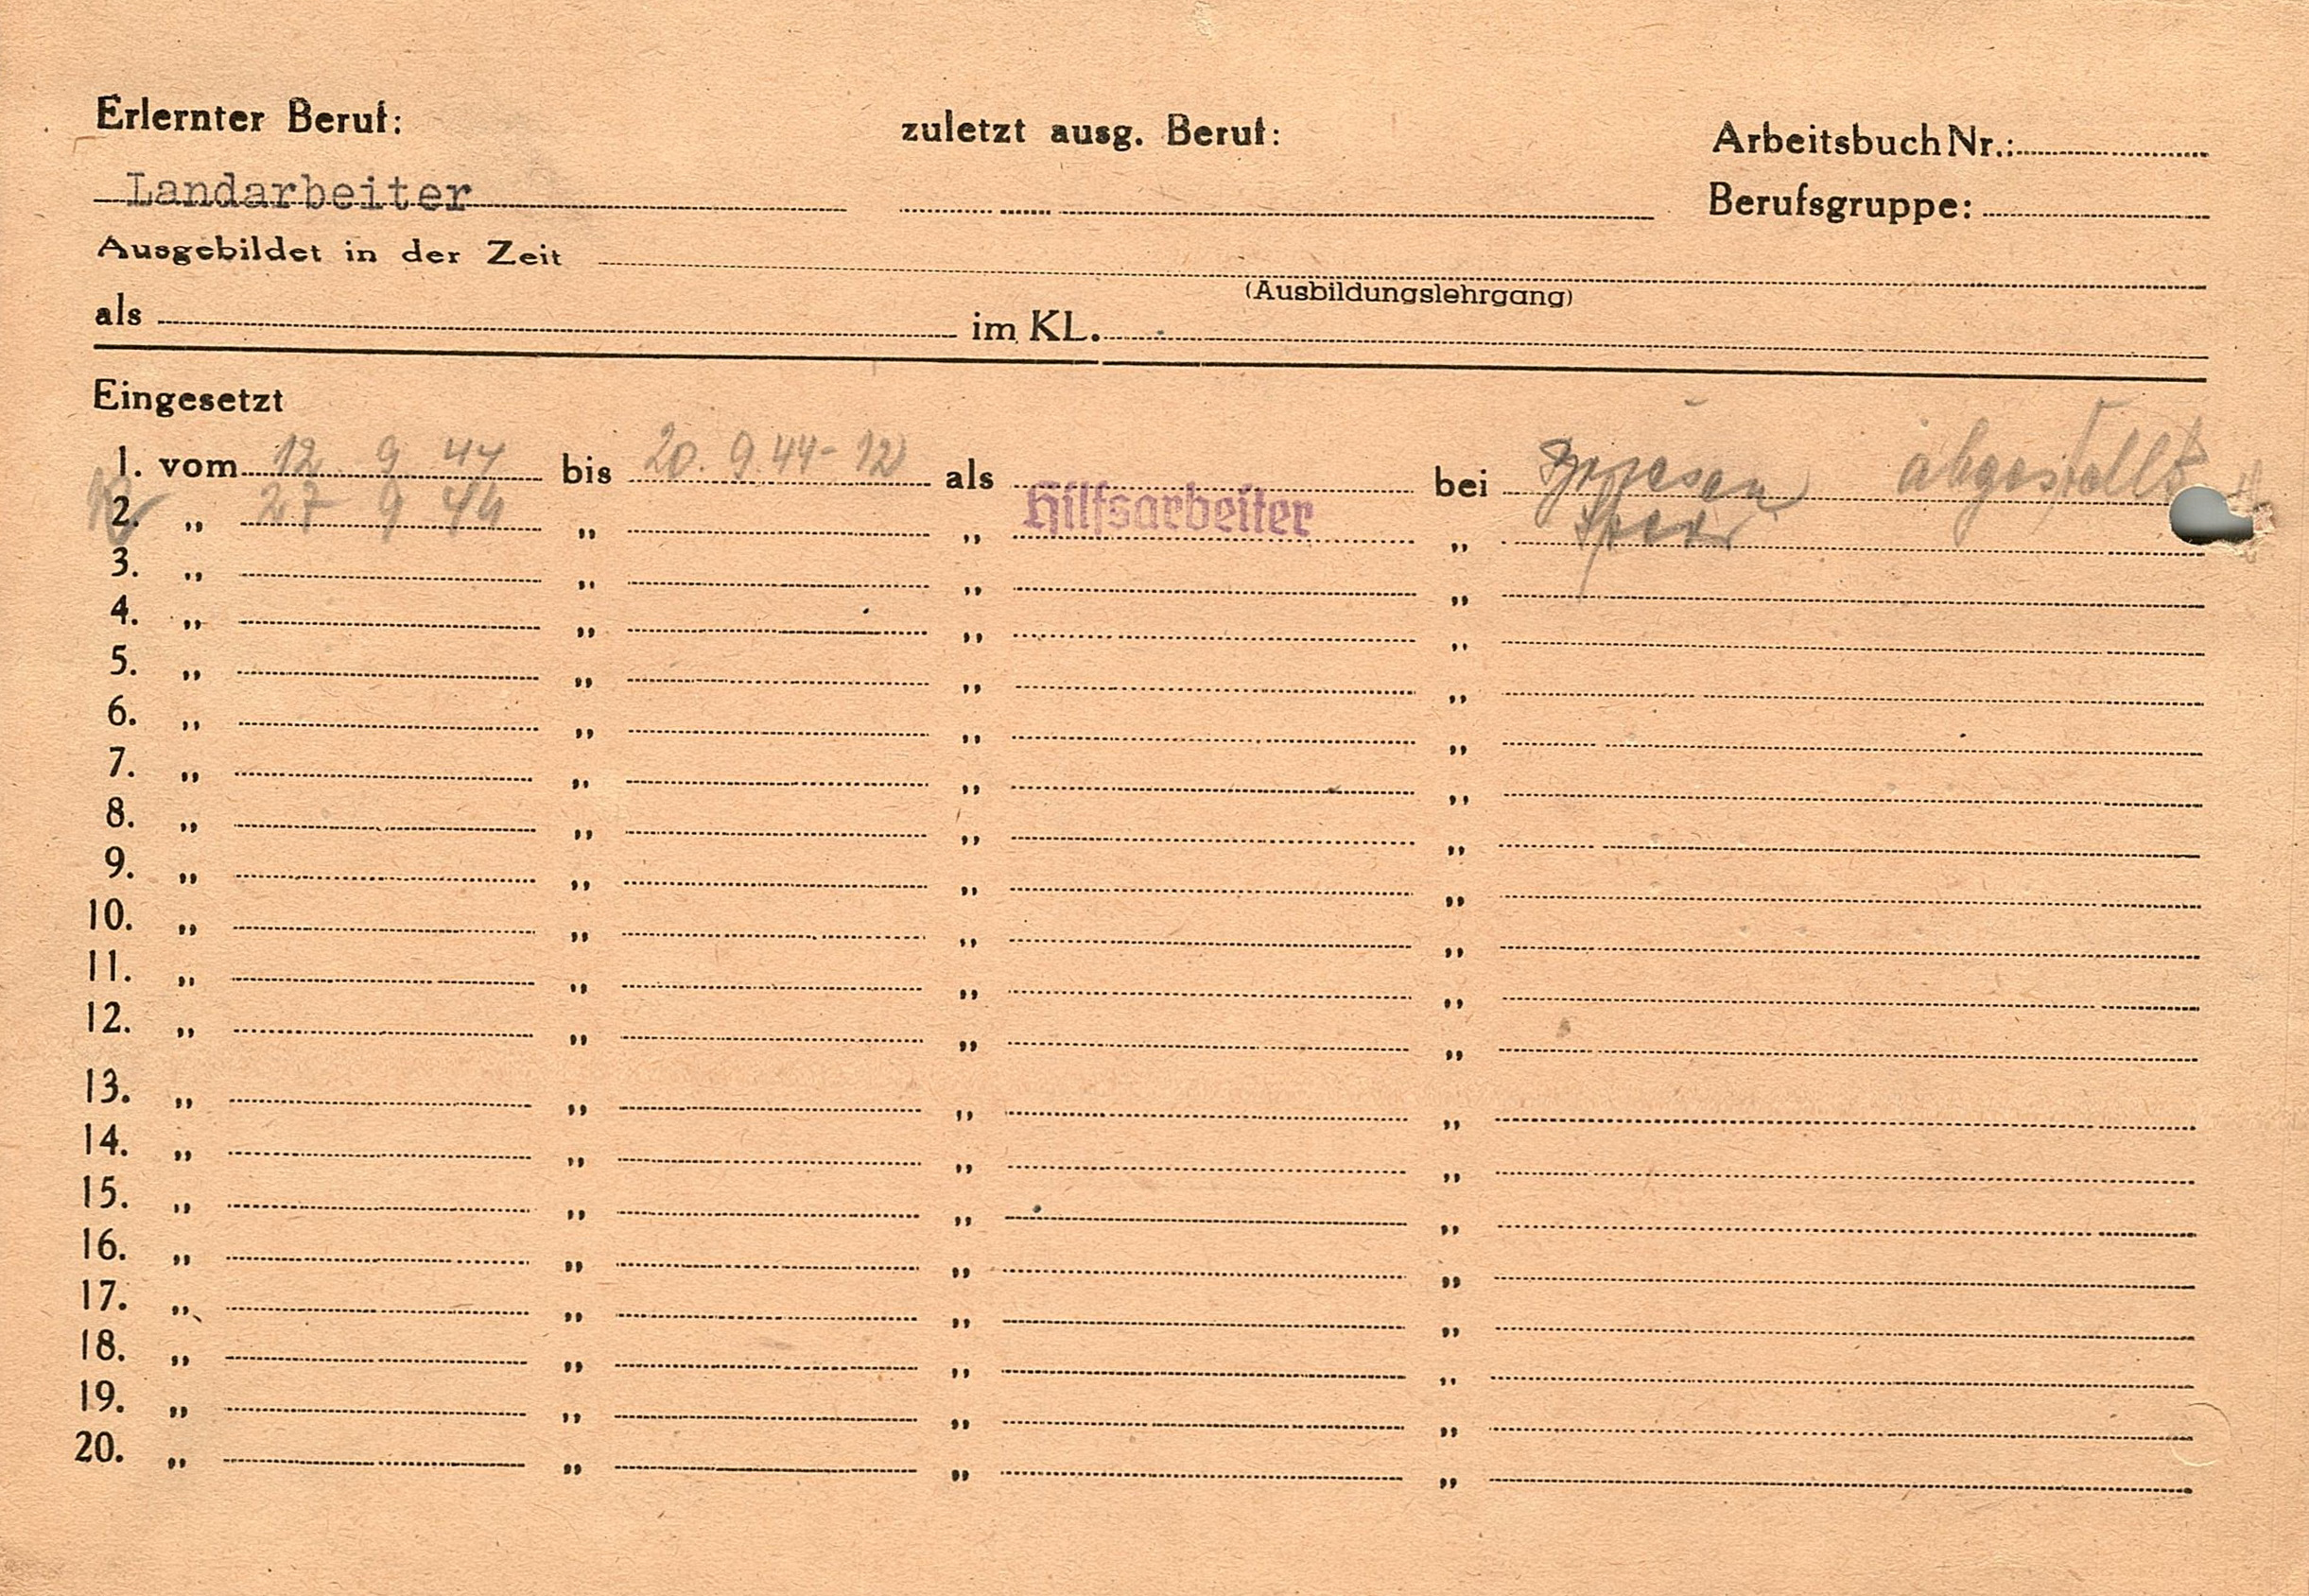 Erlernter Beruf: zuletzt ausg. Beruf: Arbeitsbuch Nr.:
Landarbeiter Berufsgruppe:
Ausgebildet in der Zeit
(Ausbildungslehrgang)
als im KL.
Eingesetzt
1. vom 12 9 44 bis 20. 9. 44 - 12 als bei abgestellt
2. „ 27 9 44 „ „ Hilfsarbeiter „
3. „ „ „ „
4. „ „ „ „
5. „ „ „ „
6. „ „ „ „
7. „ „ „ „
8. „ „ „ „
9. „ „ „ „
10. „ „ „ „
11. „ „ „ „
12. „ „ „ „
13. „ „ „ „
14. „ „ „ „
15. „ „ „ „
16. „ „ „ „
17. „ „ „ „
18. „ „ „ „
19. „ „ „ „
20. „ „ „ „